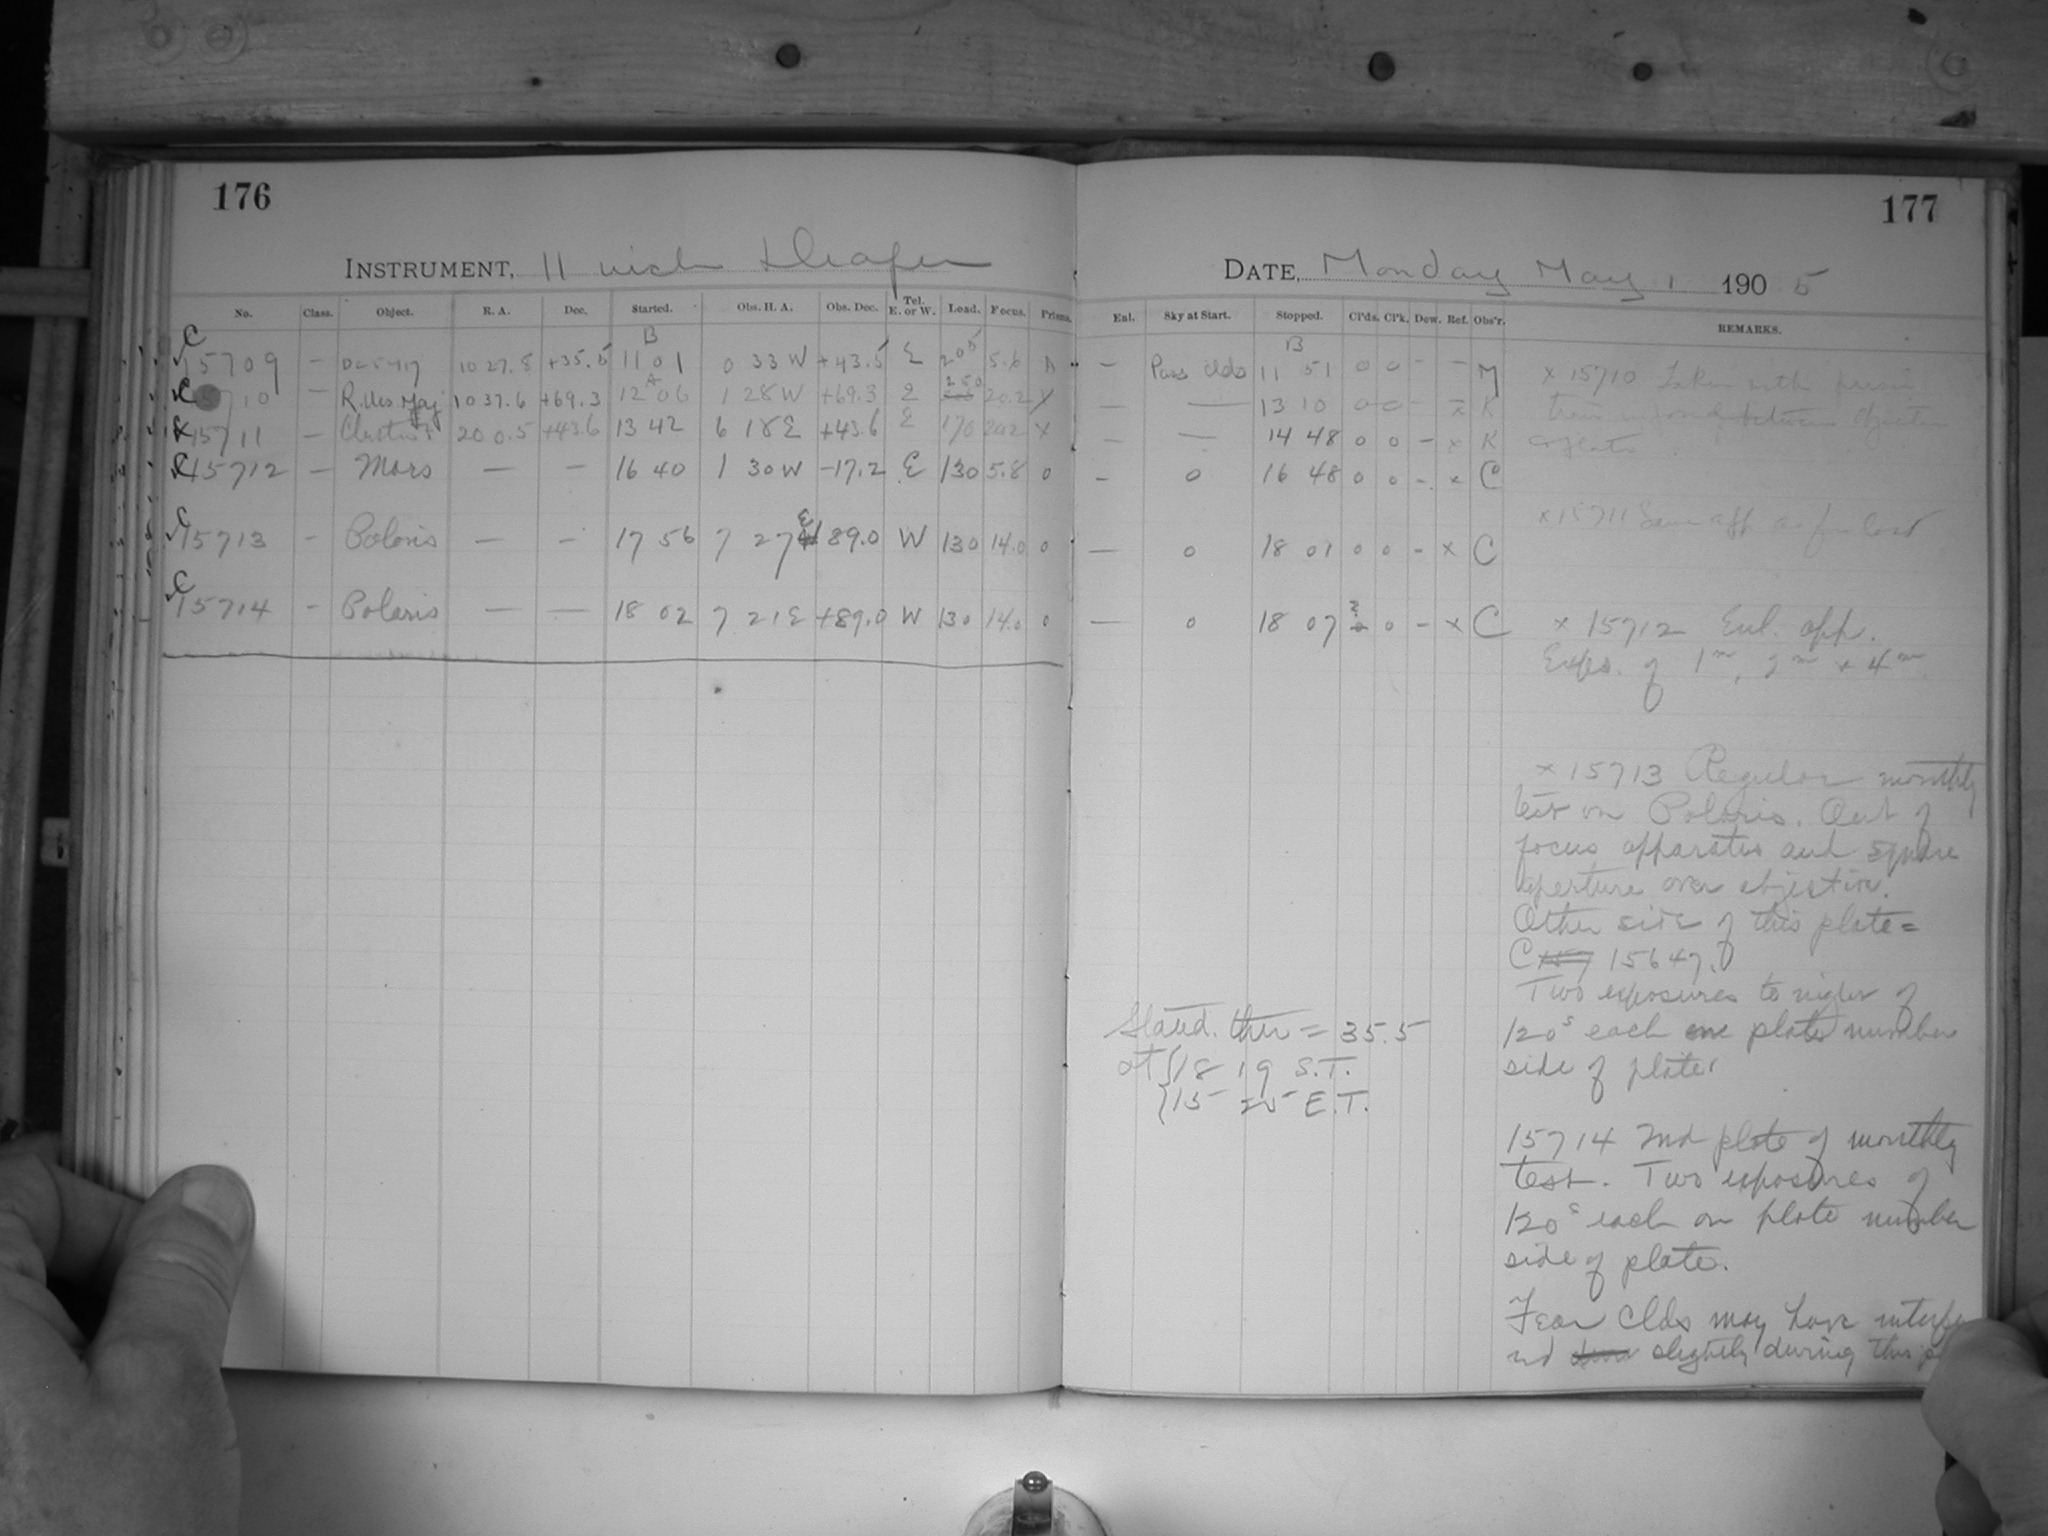 176
INSTRUMENT, 11 inch Draper
No. Class. Object. R. A. Dec. Started. Obs. H. A. Obs. Dec. Tel. E. or W. Load. Focus. Prisms.
C 15709 — 10 27.8 +35.5 B 11 01 0 33 W +43.5 E 205 5.6 A
C 15710 — R. Urs. Maj 10 37.6 +69.3 A 12 06 1 28 W +69.3 E 250 20.2 X
15711 — 20 0.5 +43.6 13 42 6 18 E +43.6 E 170 20.2 X
C 15712 — Mars — — 16 40 1 30 W -17.2 E 130 5.8 0
C 15713 - Polaris — - 17 56 7 27 E 89.0 W 130 14.0 0
C 15714 - Polaris — — 18 02 7 21 E +89.0 W 130 14.0 0
177
DATE, Monday May 1 1905
Enl. Sky at Start. Stopped. Cl'ds. Cl'k. Dew. Ref. Obs'r. REMARKS.
— Pass clds B 11 51 0 0 - — M
— — 13 10 0 0 - x K
— — 14 48 0 0 - x K
- 0 16 48 0 0 - x C
— 0 18 01 0 0 - x C
— 0 18 07 ? 0 - x C
x 15710 Taken with prism
between objective
x 15711 Same app. as for last
x 15712 Enl. app.
Expos. of 1m, 2m + 4m
x 15713 Regular monthly
test on Polaris. Out of
focus apparatus and square
aperture over objective.
Other side of this plate =
C 15647.
Two exposures to right of
120s each one plate number
side of plate.
15714 2nd plate of monthly
test. Two exposures of
120s each on plate number
side of plate.
Fear clds may have
slightly during this
Stand. ther = 35.5
at { 18 19 S.T.
{ 15 25 E.T.